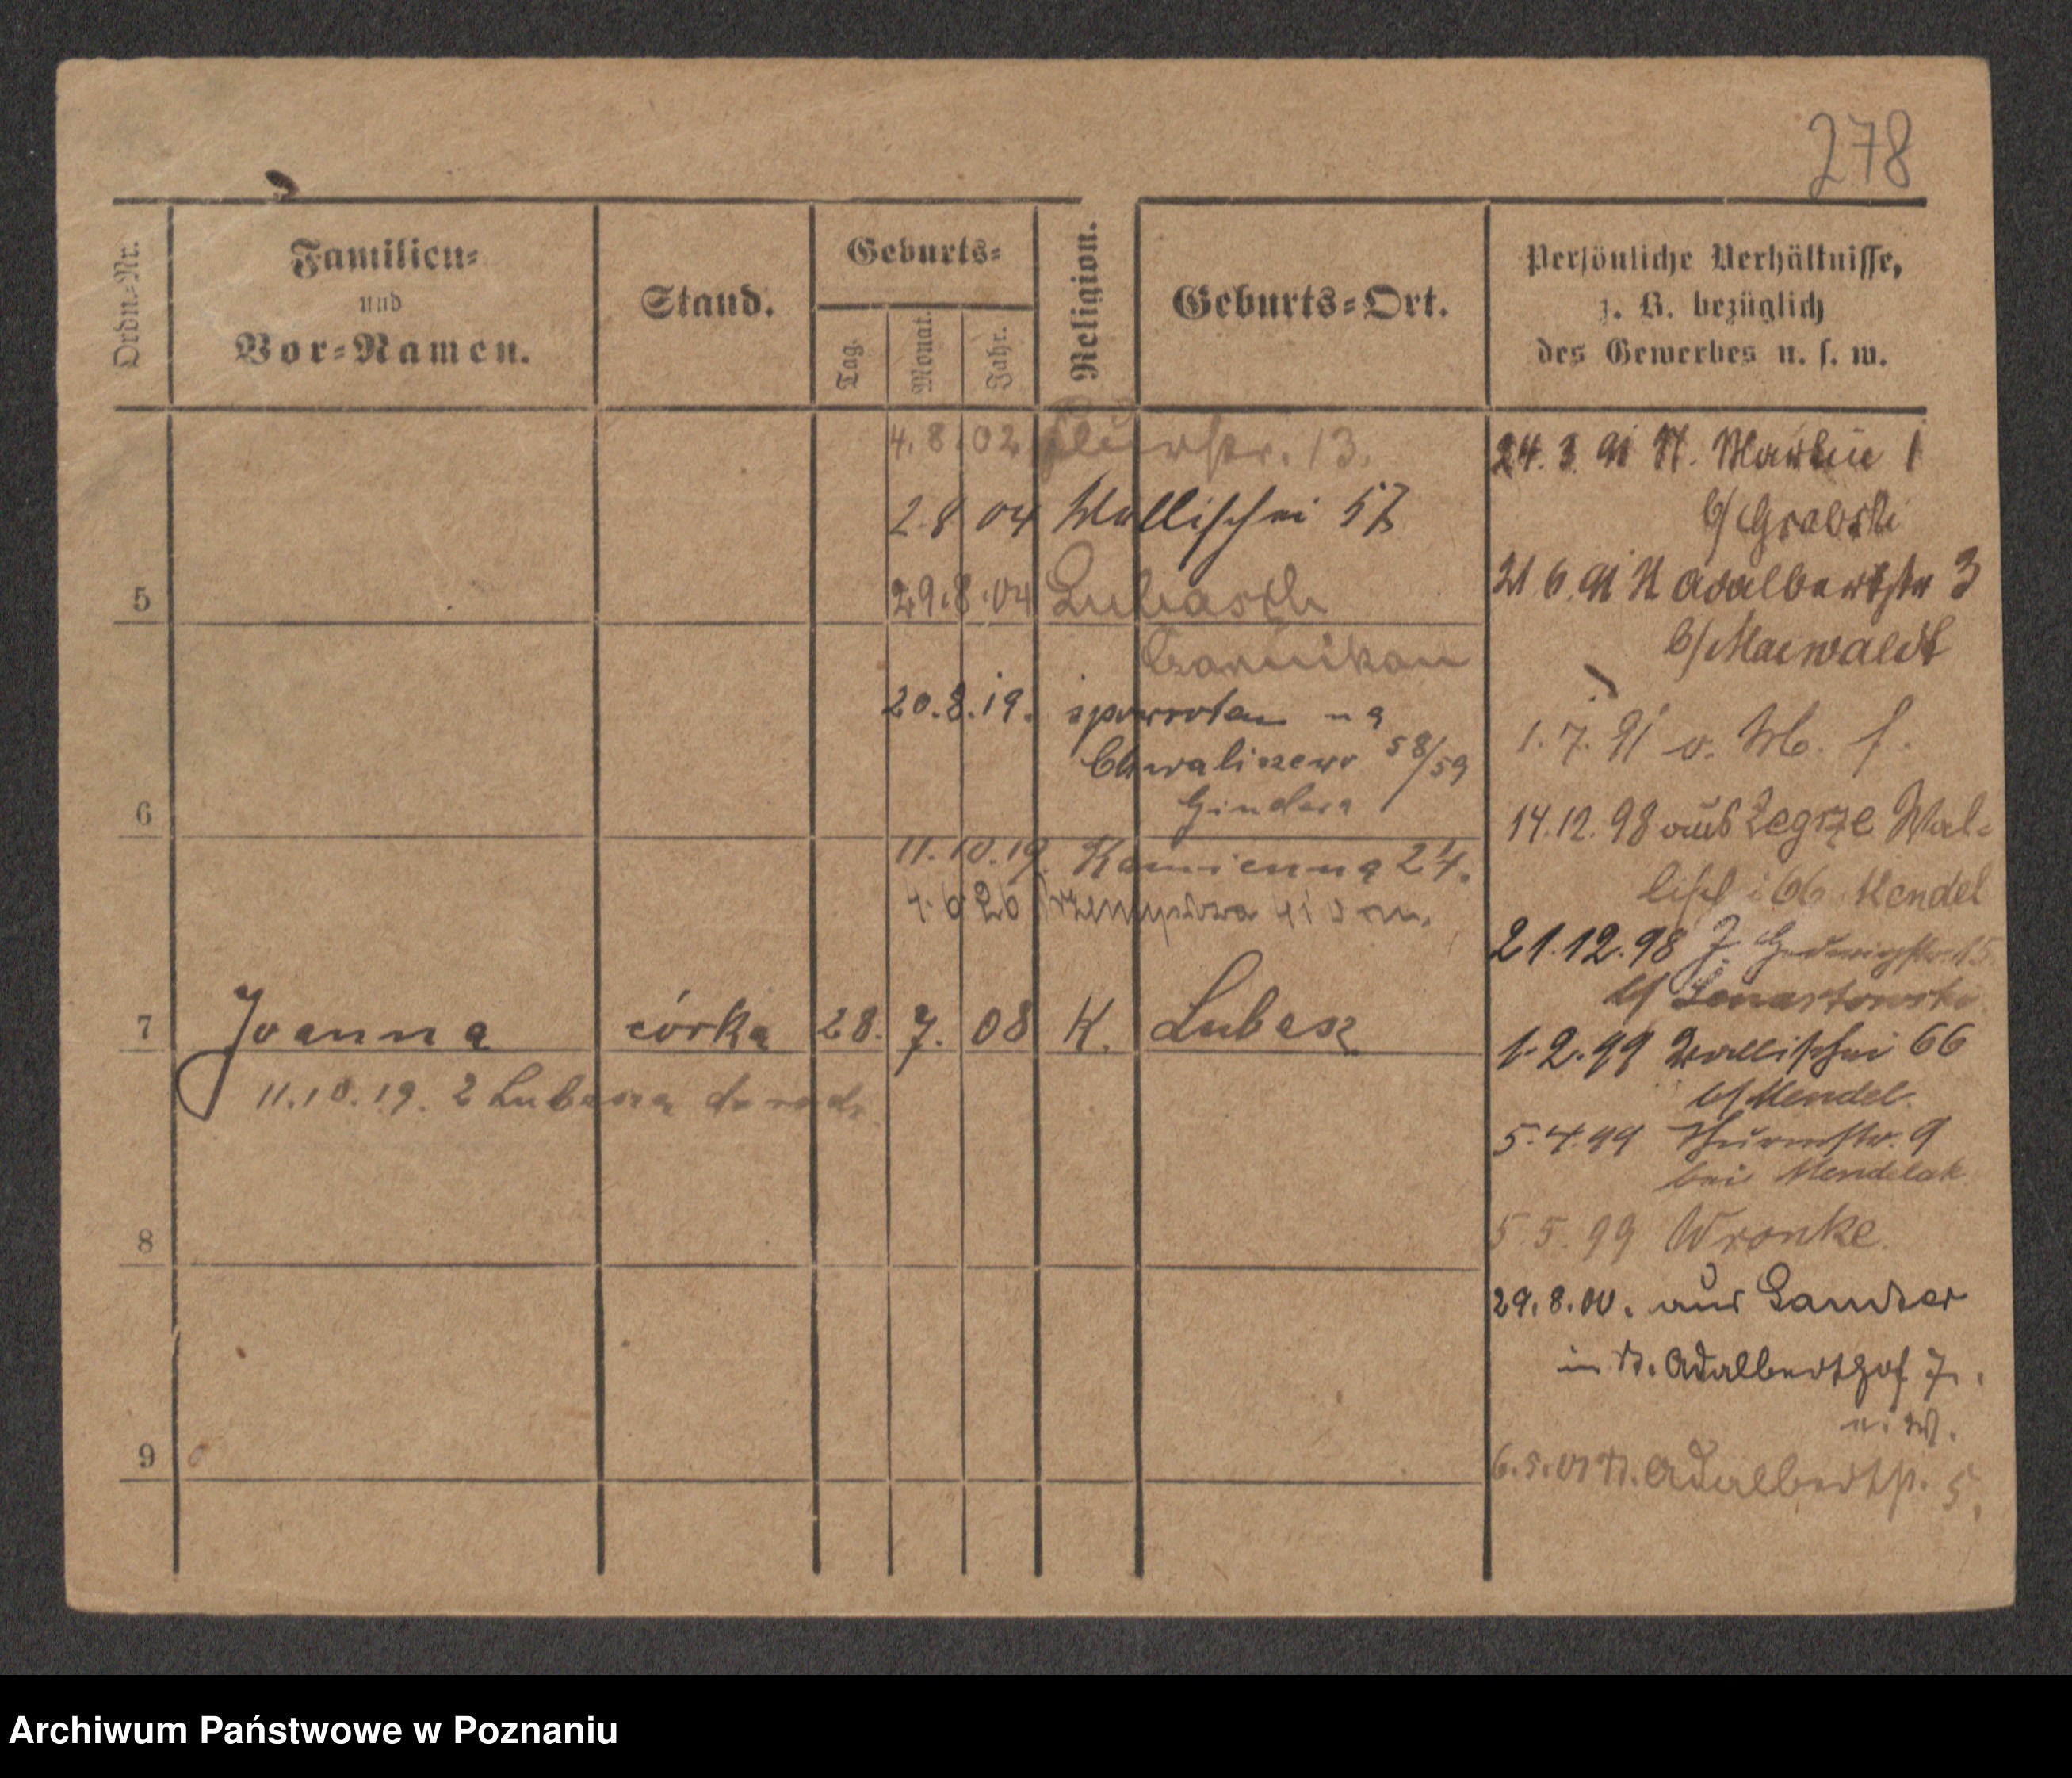 278
Ordn.-Nr.
Familien-
und
Vor-Namen.
Stand.
Geburts-
Tag.
Monat.
Jahr.
Religion.
Geburts-Ort.
Persönliche Verhältnisse,
z. B. bezüglich
des Gewerbes u. s. w.
4.8.02 13.
2.8 04 Wallischei 57
5
29.8.04 Lubasch
Czarnikau
20.8.19. spowrotem na
Chwaliszewo 58/59
Gindera
6
11.10.19. Kamienna 24.
4.6 20
7 Joanna córka 28. 7. 08 K. Lubasz
11.10.19. z Lubasza do
8
9
24.3.91 St. Martin 1
b/ Grabsch
21 6.91 St Adalbertstr 3
b/ Maiwaldt
1.7.91 v. W. f.
14.12.98 aus Zegrze Wal-
lisch i 66 Mendel
21.12.98
b/ Lenartowski
1.2.99 Wallischei 66
b/ Mendel.
5.4.99 Thurmstr. 9
bei Mendelak
5.5.99 Wronke.
29.8.00. aus
in St. Adalberthof 7.
u. W.
6.5.01 St. Adalbertsp. 5.
Archiwum Państwowe w Poznaniu